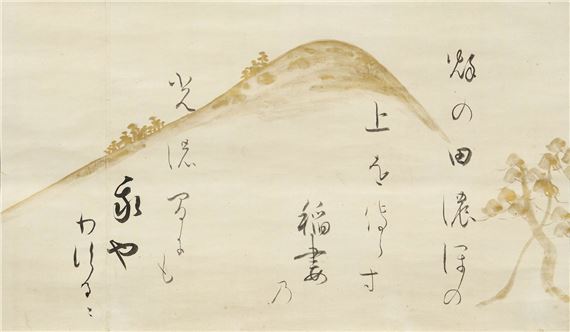 秋の田濃ほの
上をてら寸
稲妻乃
光濃まにも
我や
わするゝ